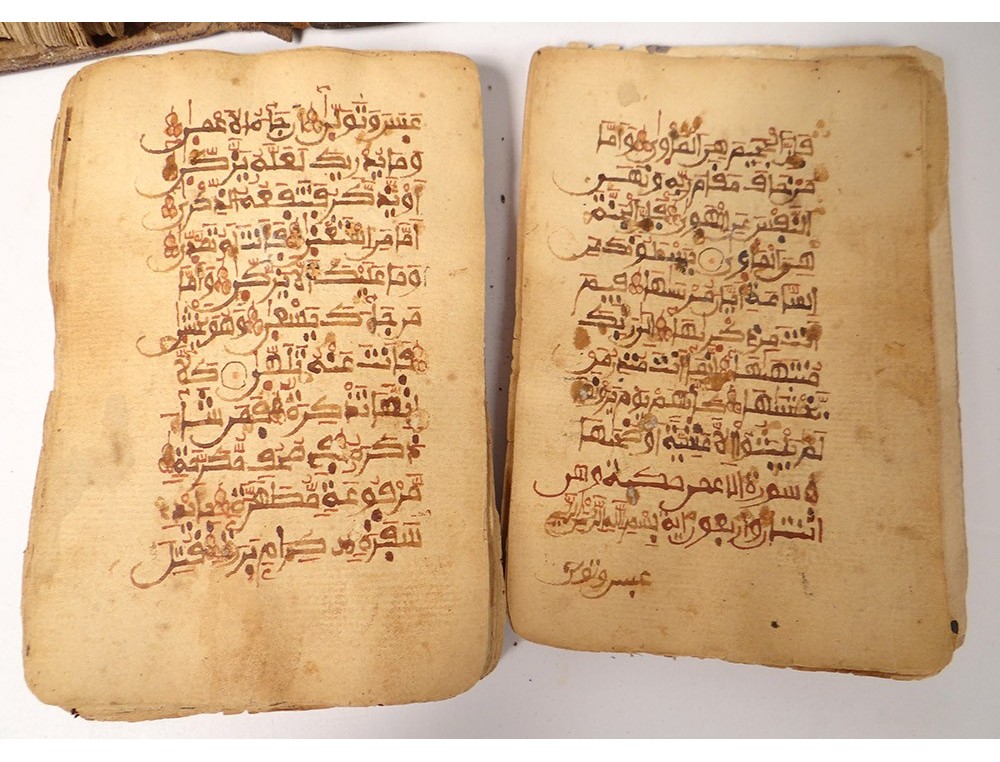 فإن الجحيم هي المأوى وأما
من خاف مقام ربه ونهى
النفس عن الهوى فإن الجنة
هي المأوى يسئلونك عن
الساعة أيان مرسيها فيم
أنت من ذكريها إلى ربك
منتهيها إنما أنت منذر من
يخشيها كأنهم يوم يرونها
لم يلبثوا إلا عشية أو ضحيها
سورة الاعمى مكية وهي
اثنتان واربعون اية بسم الله الرحمن الرحيم
عبس وتولى
عبس وتولى أن جاءه الأعمى
وما يدريك لعله يزكى
أو يذكر فتنفعه الذكرى
أما من استغنى فأنت له تصدى
وما عليك ألا يزكى وأما
من جاءك يسعى وهو يخشى
فأنت عنه تلهى كلا
إنها تذكرة فمن شاء
ذكره في صحف مكرمة
مرفوعة مطهرة بأيدي
سفرة كرام بررة قتل